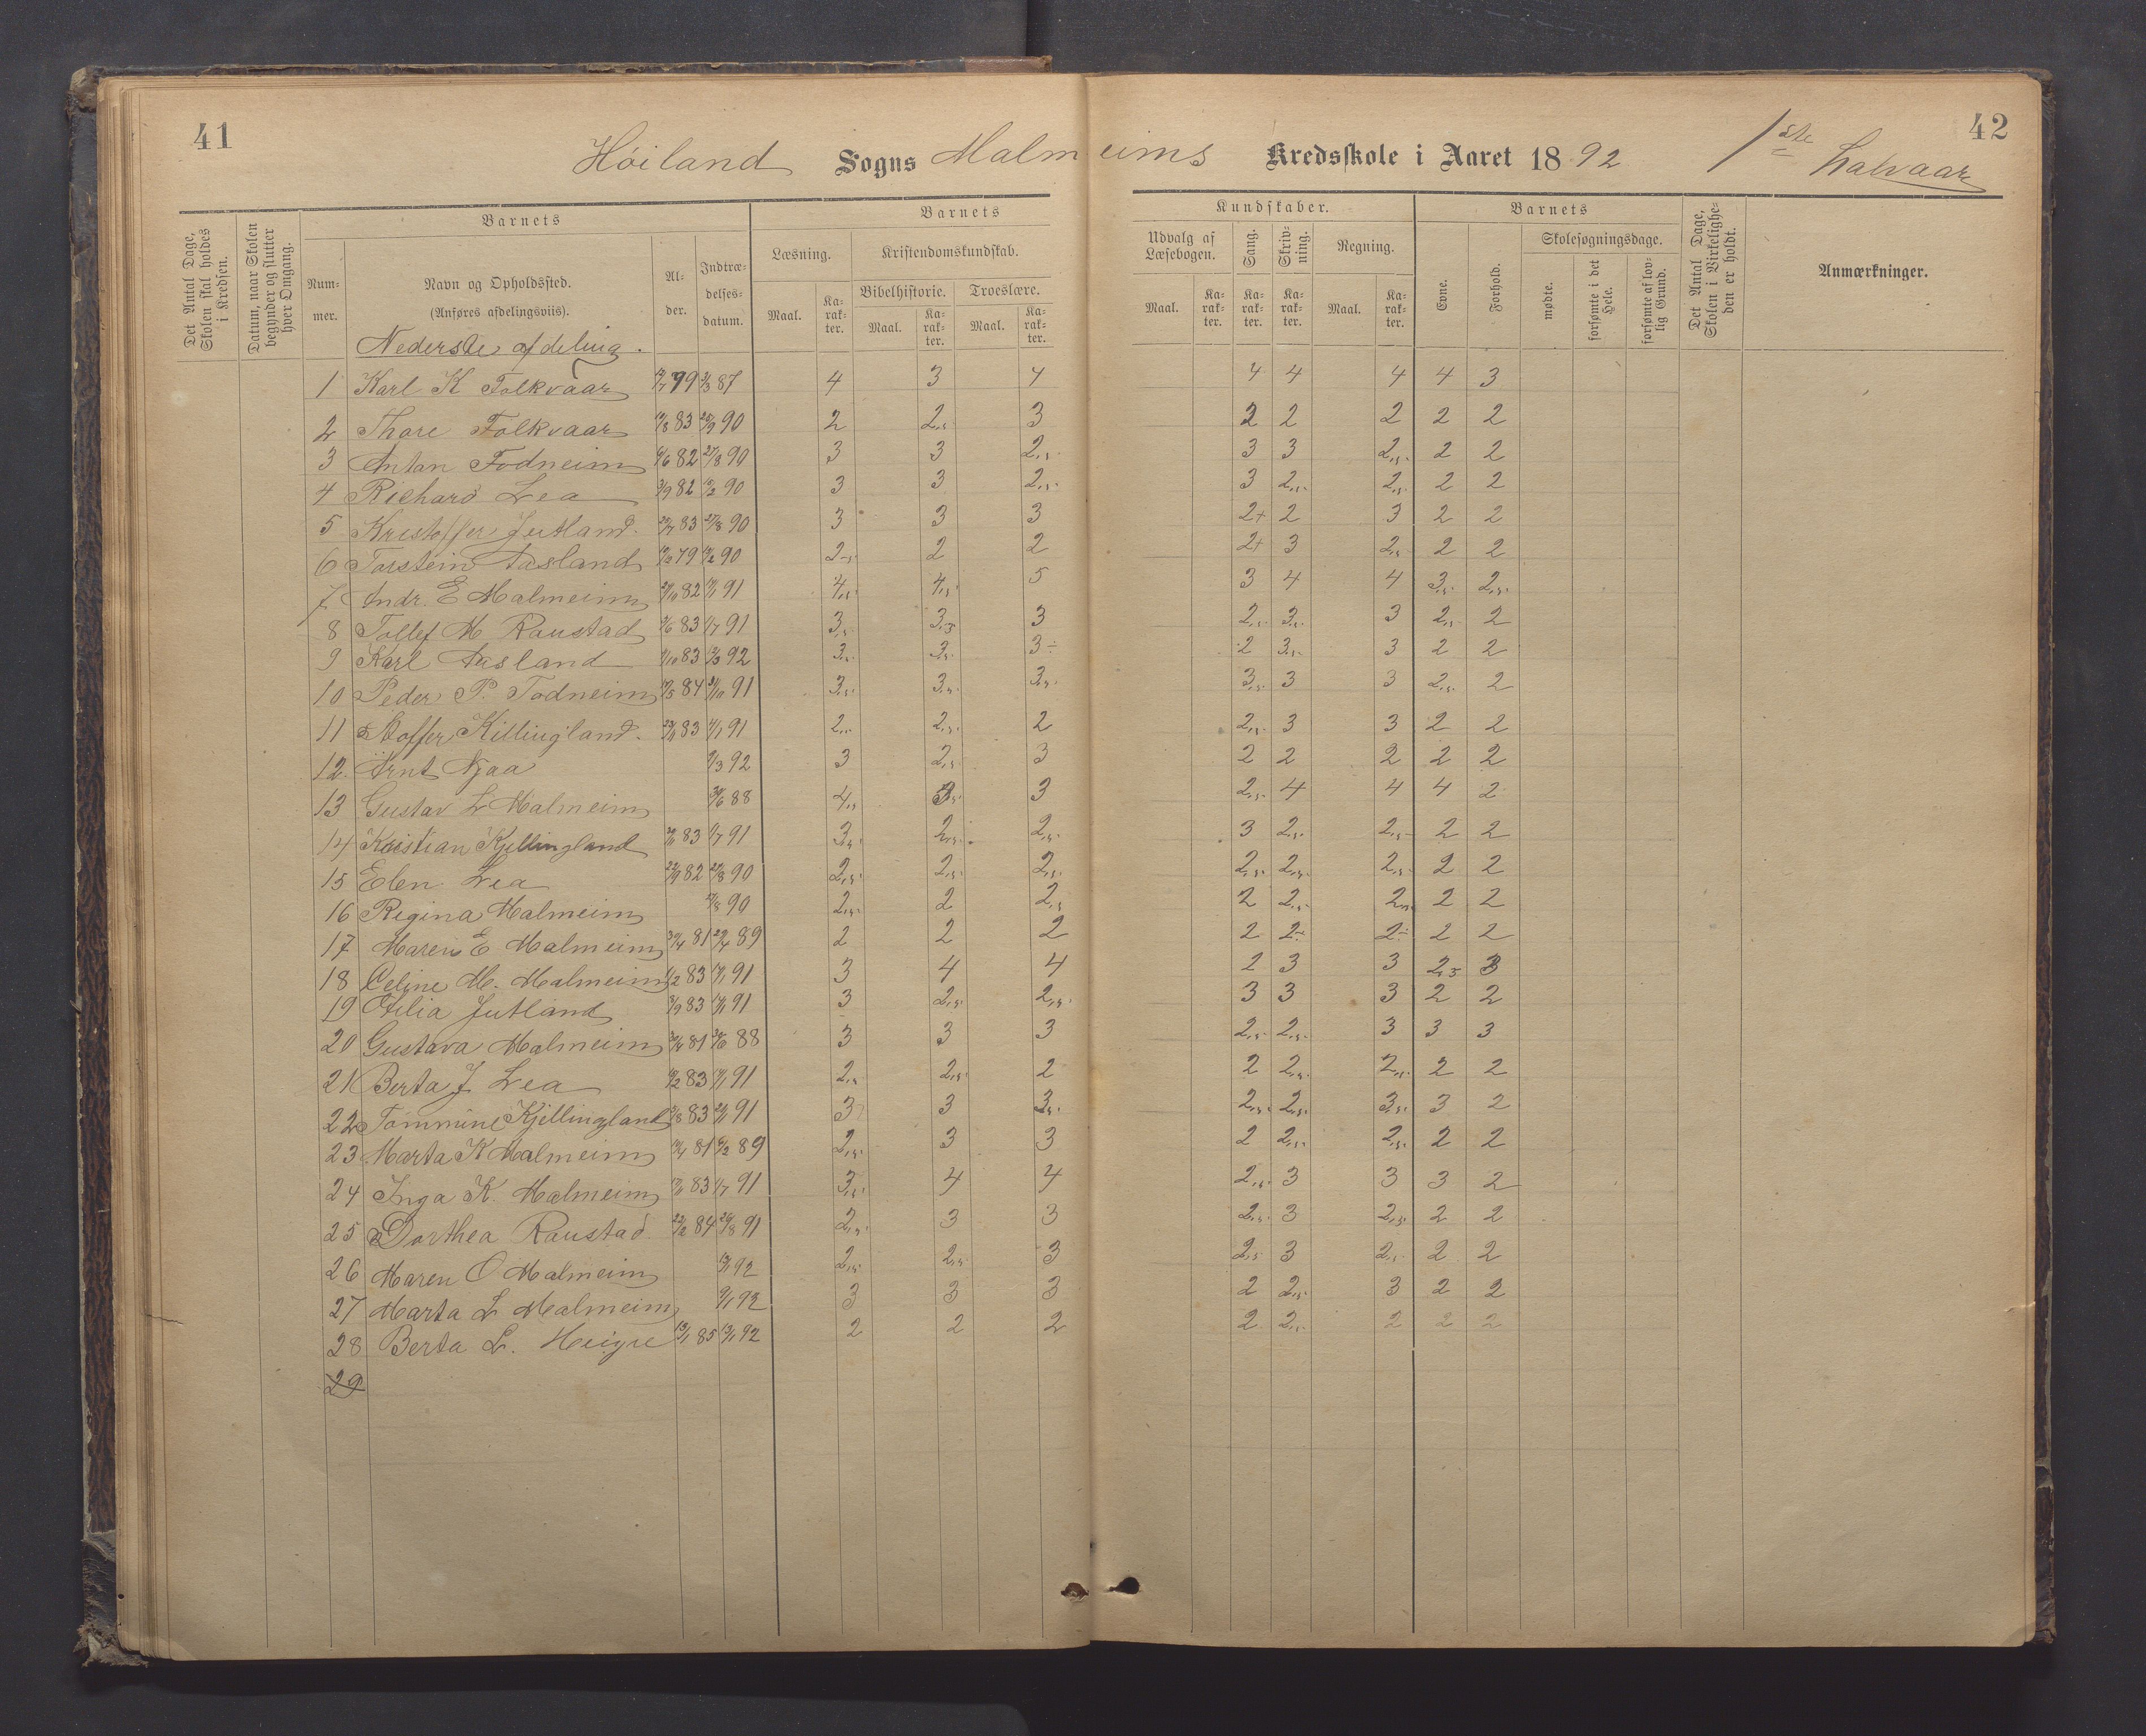 41
42
Höiland Sogns Malmeims Kredsskole i Aaret 1892 1ste Halvaar
Det Antal Dage, Skolen skal holdes i Kredsen.
Datum, naar Skolen begynder og slutter hver Omgang.
Barnets
Nummer.
Navn og Opholdssted.
(Anføres afdelingsviis).
Alder.
Indtrædelsesdatum.
Barnets
Kundskaber.
Læsning.
Kristendomskundskab.
Bibelhistorie.
Troeslære.
Maal.
Karakter.
Maal.
Karakter.
Maal.
Karakter.
Udvalg af Læsebogen.
Sang.
Skrivning.
Regning.
Maal.
Karakter.
Karakter.
Karakter.
Maal.
Karakter.
Barnets
Evne.
Forhold.
Skolesøgningsdage.
mødte.
forsømte i det Hele.
forsømte af lovlig Grund.
Det Antal Dage, Skolen i Virkeligheden er holdt.
Anmærkninger.
Nederste afdeling.
1 Karl K Folkvaar 87 4 3 4 4 4 4 4 3
2 Thore Folkvaar 83 90 2 2,5 3 2 2 2 2 2
3 Antan Fodneim 6/6 82 27/8 90 3 3 2,5 3 3 2,5 2 2
4 Richard Lea 3/9 82 90 3 3 2,5 3 2,5 2,5 2 2
5 Kristoffer Jutland. 83 27/8 90 3 3 3 2+ 2 3 2 2
6 Torstein Aasland 79 90 2,5 2 2 2+ 3 2,5 2 2
7 Andr. E Malmeim 82 91 4,5 4,5 5 3 4 4 3,5 2,5
8 Tollef M Raustad 83 1/7 91 3,5 3,5 3 2,5 3,5 3 2,5 2
9 Karl Aasland 83 92 3,5 3,5 3÷ 2 3,5 3 2 2
10 Peder P. Todneim 84 91 3,5 3,5 3,5 3,5 3 3 2,5 2
11 Stoffer Killingland. 83 91 2,5 2,5 2 2,5 3 3 2 2
12 Arnt Njaa 92 3 2,5 3 2 2 2 2 2
13 Gustav L Malmeim 88 4,5 3,5 3 2,5 4 4 4 2
14 Kristian Kjellingland 83 1/7 91 3,5 2,5 2,5 3 2,5 2,5 2 2
15 Elen Lea 82 27/8 90 2,5 2,5 2,5 2,5 2,5 2,5 2 2
16 Regina Malmeim 90 2,5 2 2,5 2 2,5 2,5 2 2
17 Maren E Malmeim 81 89 2 2 2 2 2÷ 2÷ 2 2
18 Celine M. Malmeim 83 91 3 4 4 2 3 3 2,5 3
19 Otilia Jutland 83 91 3 2,5 2,5 3 3 3 2 2
20 Gustava Malmeim 81 88 3 3 3 2,5 2,5 3 3 3
21 Berta J Lea 83 91 2,5 2,5 2 2 2,5 2,5 2 2
22 Tommine Kjellingland 83 91 3 3 3,5 2,5 2,5 3,5 3 2
23 Marta K Malmeim 81 89 2,5 3 3 2 2,5 2,5 2 2
24 Inga K. Malmeim 83 1/7 91 3,5 4 4 2,5 3 3 3 2
25 Dorthea Raustad 84 91 2,5 3 3 2,5 3 2,5 2 2
26 Maren O Malmeim 92 2,5 2,5 3 2,5 3 2,5 2 2
27 Marta L Malmeim 92 3 3 3 2 2,5 3 2 2
28 Berta L. Heigre 13/1 85 13/1 92 2 2 2 2 2,5 2 2 2
29